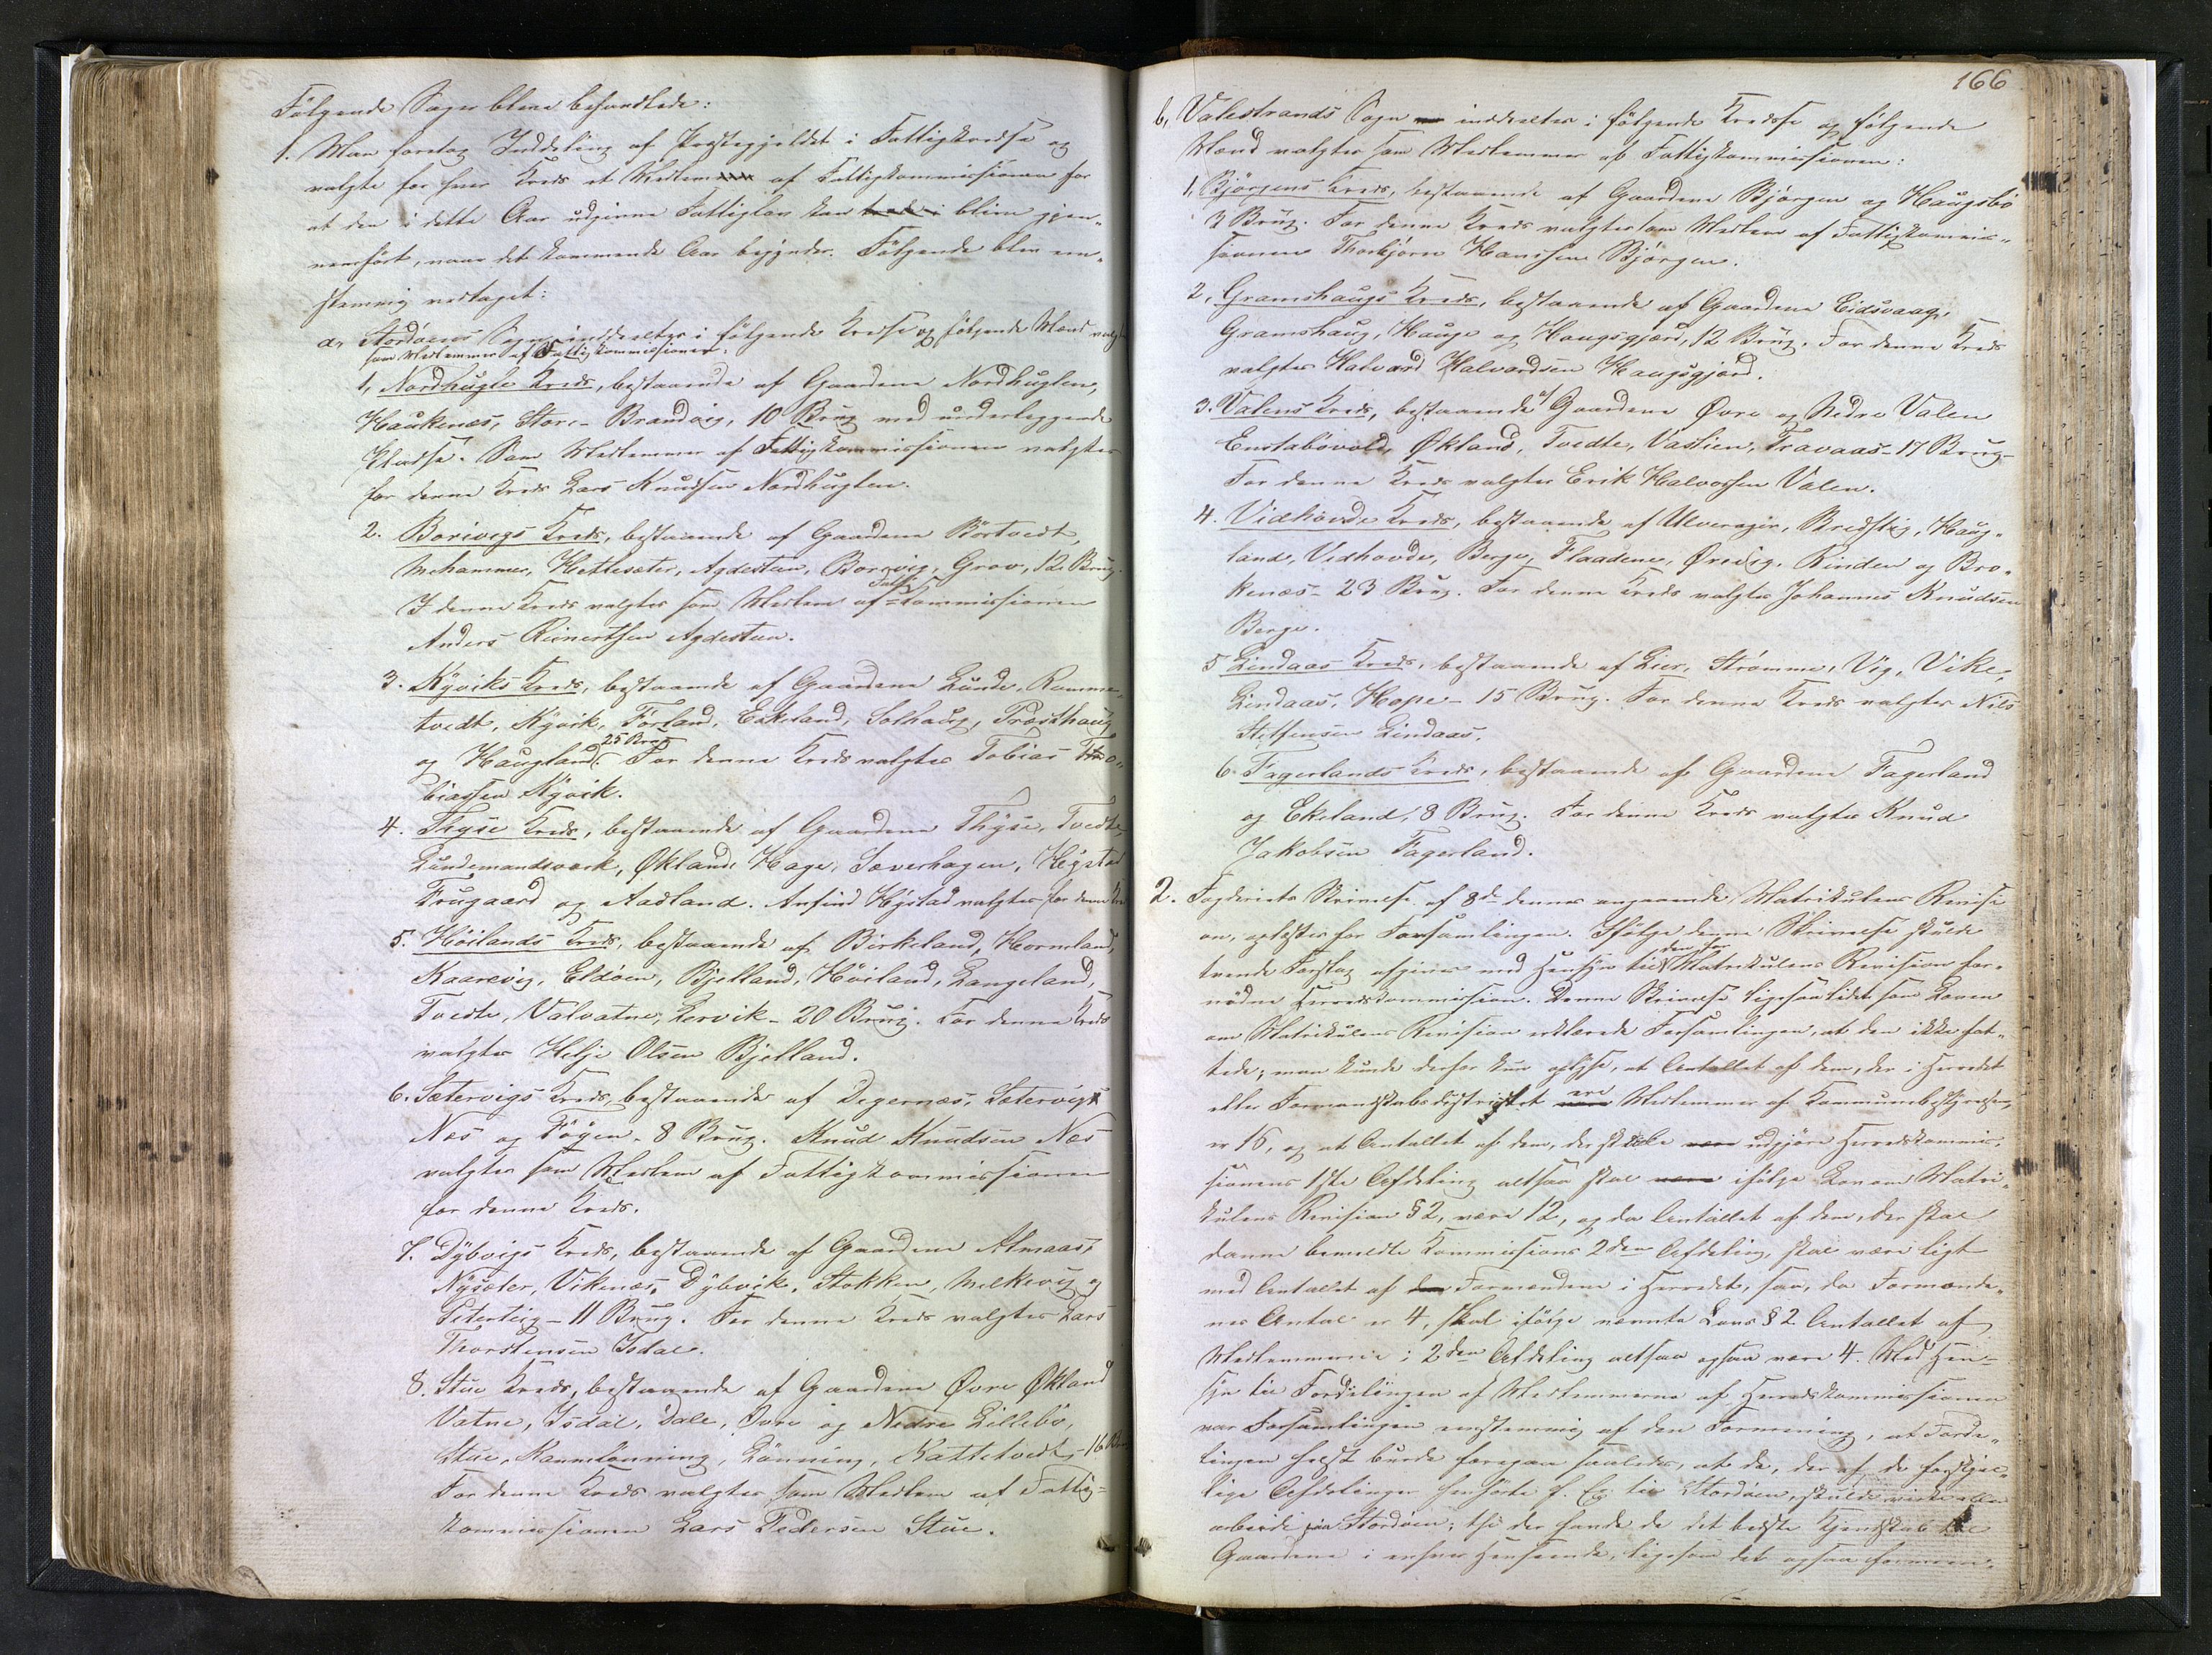 Følgende Sager bleve behandlede:
1. Man foretog Inddeling af Præstegjeldet i Fattigkredse og
valgte for hver Kreds et Medlem af Fattigkommissionen for
at den i dette Aar udgivne Fattiglov kan blive gjen-
nemført, naar det kommende Aar begynder. Følgende blev een-
stemmig vedtaget:
a, Stordøens Sogn inddeeltes i følgende Kredse og følgende Mænd valgtes
som Medlemmer af Fattigkommissionen:
1, Nordhugle Kreds, bestaaende af Gaardene Nordhuglen,
Haukenæs, Store- Brandvig, 10 Brug med underliggende
Pladse. Som Medlemmer af Fattigkommissionen valgtes
for denne Kreds Lars Knudsen Nordhuglen.
2. Borivegs Kreds, bestaaende af Gaardene Børtvedt,
Mehammer, Hettlesæter, Agdesteen, Borgvig, Grov, 12 Brug.
I denne Kreds valgtes som Medlem af Fattigkommissionen
Anders Reinertsen Agdesteen.
3. Kyviks Kreds, bestaaende af Gaardene Lunde, Ramme-
tvedt, Kyvik, Førland, Eskeland, Solhaug, Præsthaug
og Haugland, 25 Brug. For denne Kreds valgtes Tobias To-
biassen Kyvik.
4. Thyse Kreds, bestaaende af Gaardene Thyse, Tvedte,
Lundemandsværk, Økland, Hage, Sæverhagen, Hystad
Frugaard og Aadland. Anfind Hystad valgtes for denne Kreds
5. Høilands Kreds, bestaaende af Birkeland, Horneland,
Kaarevig, Eldøen, Bjelland, Høiland, Langeland,
Tvedte, Valvatne, Lervik - 20 Brug. For denne Kreds
valgtes Helje Olsen Bjelland.
6. Sætervigs Kreds, bestaaende af Digernæs, Sætervig,
Næs og Føyen - 8 Brug. Knud Knudsen Næs
valgtes som Medlem af Fattigkommissionen
for denne Kreds.
7. Dybvigs Kreds, bestaaende af Gaardene Almaas,
Nysæter, Vikenæs, Dybvik, Stokken, Melkevig og
Peterteig - 11 Brug. For denne Kreds valgtes Lars
Thorstensen Isdal.
8. Stue Kreds, bestaaende af Gaardene Øvre Økland
Vatne, Isdal, Dale, Øvre og Nedre Lillebø,
Stue, Ravneløvning, Lønning, Kattetvedt, - 16 Brug
For denne Kreds valgtes som Medlem af Fattig-
kommissionen Lars Pedersen Stue.
166
b, Valestrands Sogn inddeeltes i følgende Kredse og følgende
Mænd valgtes som Medlemmer af Fattigkommissionen:
1, Bjørgens Kreds, bestaaende af Gaardene Bjørgen og Haugsbø
3 Brug. For denne Kreds valgtes som Medlem af Fattigkommis-
sionen Thorbjørn Hansen Bjørgen.
2, Gramshaugs Kreds, bestaaende af Gaardene Eidsvaag,
Gramshaug, Hauge og Haugsgjærd, 12 Brug. For denne Kreds
valgtes Halvard Halvardsen Haugsgjærd.
3. Valens Kreds, bestaaende af Gaardene Øvre og Nedre Valen
Enstabøvold, Økland, Tvedte, Vaslien, Travaas - 17 Brug -
For denne Kreds valgtes Erik Halvorsen Valen.
4. Vidhovde Kreds, bestaaende af Ulverager, Bredstig, Haug-
land, Vidhovde, Berge, Flaadene, Ørevig, Rinden og Bro-
kenæs - 23 Brug. For denne Kreds valgtes Johannes Knudsen
Berge.
5 Lindaas Kreds, bestaaende af Lier, Strømme, Vig, Vike,
Lindaas, Hope - 15 Brug. For denne Kreds valgtes Nils
Steffensen Lindaas.
6. Fagerlands Kreds, bestaaende af Gaardene Fagerland
og Ekeland, 8 Brug. For denne Kreds valgtes Knud
Jakobsen Fagerland.
2. Fogderiets Skrivelse af 8de dennes angaaende Matrikulens Revisi-
on, oplæstes for Forsamlingen. Ifølge denne Skrivelse skulde
trende Forslag afgives med Hensyn til den for Matrikulens Revision for-
nødne Herredskommission. Denne Skrivelse ligesaalidt som Loven
om Matrikulens Revision erklærede Forsamlingen, at den ikke fat-
tede; man kunde derfor kun oplyse, at Antallet af dem, der i Herredet
eller Formandskabsdistriktet ere Medlemmer af Kommunebestyrelsen,
er 16, og at Antallet af dem, der skulle udgjøre Herredskommis-
sionens 1ste Afdeling altsaa skal ifølge Lov om Matri-
kulens Revision § 2, være 12, og da Antallet af dem, der skal
danne bemeldte Kommissions 2den Afdeling, skal være ligt
med Antallet af Formændene i Herredet, saa, da Formænde-
nes Antal er 4, skal ifølge nævnte Lovs § 2 Antallet af
Medlemmerne i 2den Afdeling altsaa ogsaa være 4. Med Hen-
syn til Fordelingen af Medlemmerne af Herredskommissionen
var Forsamlingen eenstemmig af den Formening, at Forde-
lingen helst burde foregaa saaledes, at de, der af de forskjel-
lige Afdelinger henhørte f. Ex. til Stordøen, skulde virke eller
arbeide paa Stordøen; thi der havde de det bedste Kjendskab til
Gaardene i enhver Henseende, ligesom det ogsaa formeen-